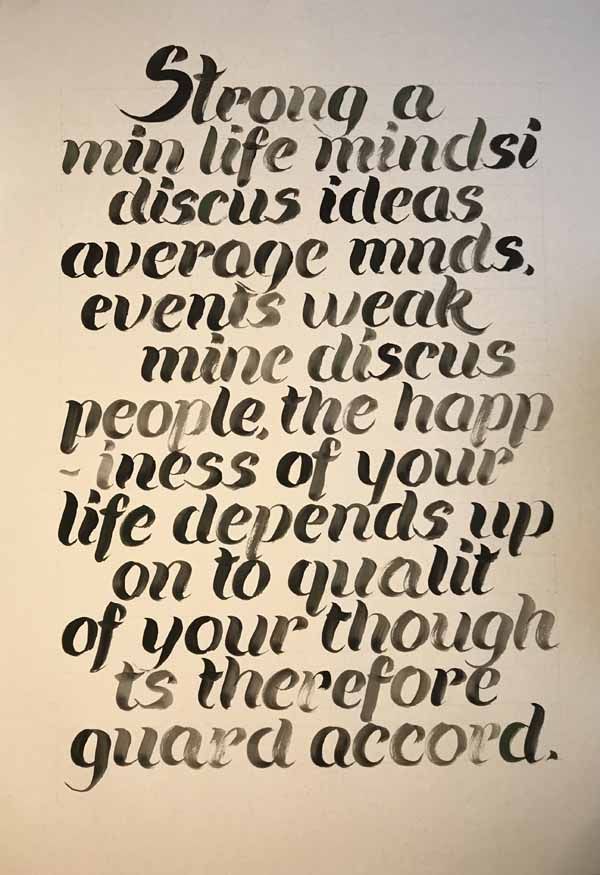 Strong a
min life mindsi
discus ideas
average mnds.
events weak
minc discus
people, the happ
- iness of your
life depends up
on to qualit
of your though
ts therefore
guard accord.